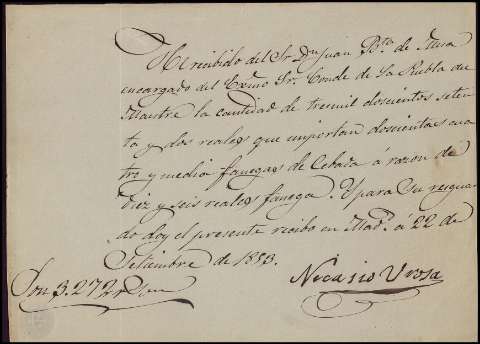 He recibido del Sr. Dn. Juan Bta. de
encargado del Exmo Sr. Conde de la Puebla del
Maestre la cantidad de tresmil doscientos seten
ta y dos reales que importan doscientas cua
tro y media fanegas de Cebada á razon de
diez y seis reales fanega. Y para su resguar
do doy el presente recibo en Madd. á 22 de
Setiembre de 1853.
Son 3.272 rs. vn
Nicasio Urosa